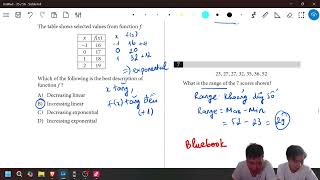 The table shows selected values from function f.
x f(x)
-1 16
0 17
1 18
2 19
x f(x)
0 20
=) exponential
Which of the following is the best description of
function f ?
A) Decreasing linear
B) Increasing linear
C) Decreasing exponential
D) Increasing exponential
x tăng
f(x) tăng đều
(+1)
7
23, 27, 27, 32, 35, 36, 52
What is the range of the 7 scores shown?
Range: khoảng
Range = Max - Min
= 52 - 23 = 29
Bluebook